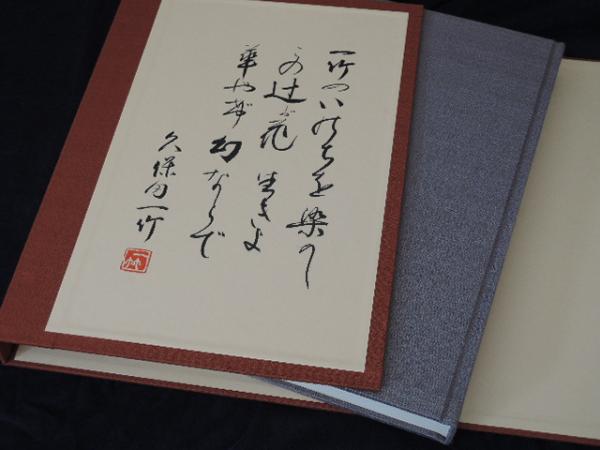 一竹のいのちを染めし
この辻が花 生きよ
華やぎ 幻ならで
久保田一竹
一竹